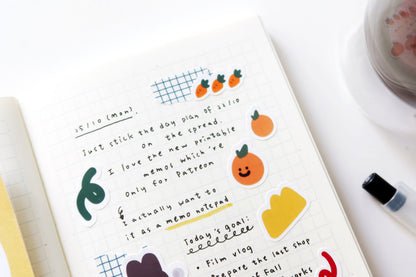 25/10 (mon).
Just stick the day plan of 22/10
on the spread.
I love the new printable
memos which're
only for Patreon
I actually want to
it as a memo notepad
Today's goal:
• Film vlog
Prepare the last shop
Fall
works